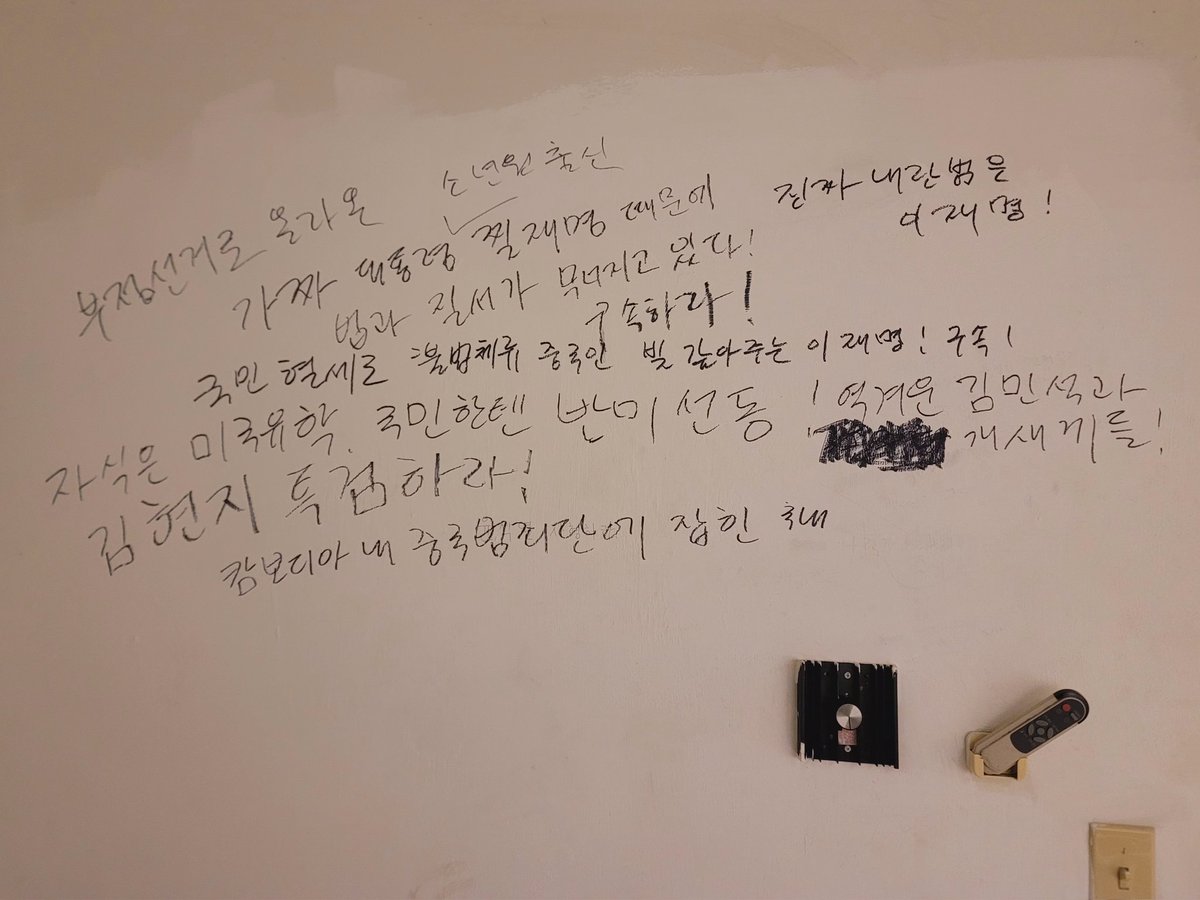 부정선거로 올라온 소년원 출신
가짜 대통령 찔재명 때문에
법과 질서가 무너지고 있다!
진짜 내란범은
이재명!
구속하라!
국민 혈세로 불법체류 중국인 빚 갚아주는 이재명! 구속!
자식은 미국유학, 국민한텐 반미 선동! 역겨운 김민석과
개새끼들!
김현지 특검하라!
캄보디아 내 중국범죄단에 잡힌